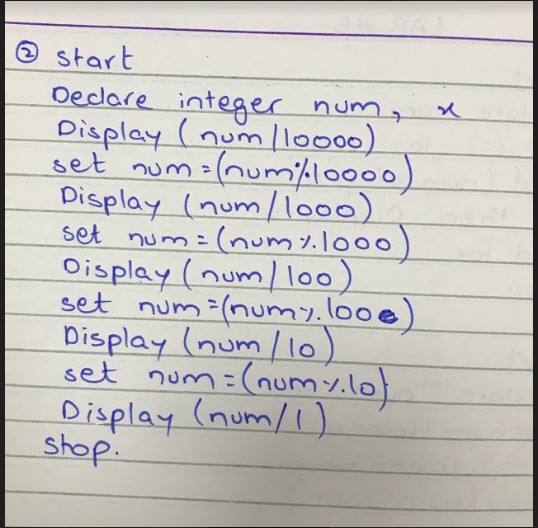 ② start
Declare integer num, x
Display (num/10000)
set num=(num%10000)
Display (num/1000)
set num=(num%1000)
Display (num/100)
set num=(num%100)
Display (num/10)
set num=(num%10)
Display (num/1)
stop.